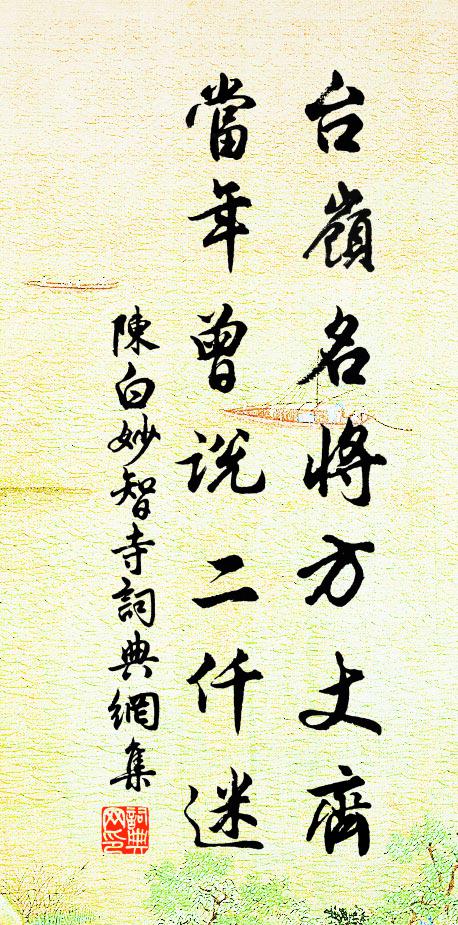 台嶺名將方丈齊
當年曾說二仟迷
陳白妙智寺詞典網集
詞典网印